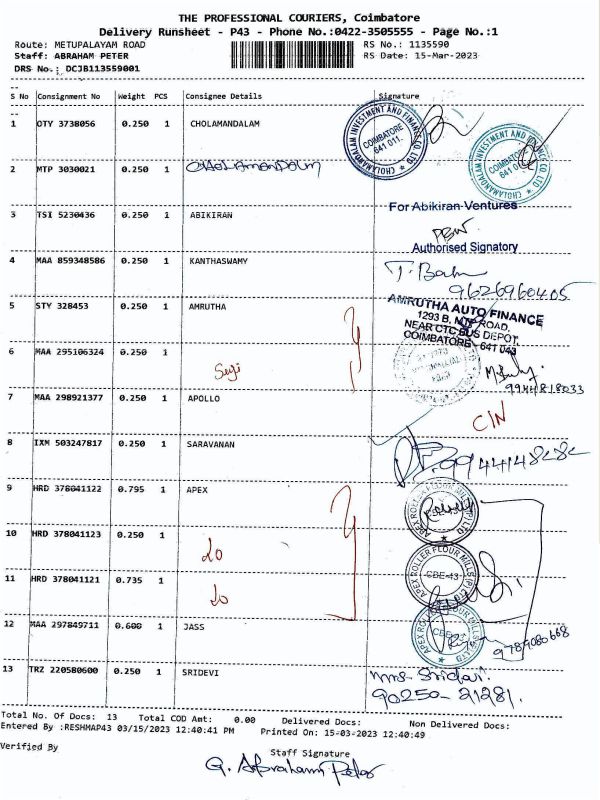 THE PROFESSIONAL COURIERS, Coimbatore
Delivery Runsheet - P43 - Phone No.:0422-3505555 - Page No.:1
Route: METUPALAYAM ROAD RS No.: 1135590
Staff: ABRAHAM PETER RS Date: 15-Mar-2023
DRS No.: DCJB113559001
S No Consignment No Weight PCS Consignee Details Signature
1 OTY 3738056 0.250 1 CHOLAMANDALAM
CHOLAMANDALAM INVESTMENT AND FINANCE CO. LTD
COIMBATORE
641 011.
CHOLAMANDALAM INVESTMENT AND FINANCE CO. LTD
COIMBATORE
641 011.
2 MTP 3030021 0.250 1 CHOLAMANDALM
3 TSI 5230436 0.250 1 ABIKIRAN
For Abikiran Ventures
Authorised Signatory
4 MAA 859348586 0.250 1 KANTHASWAMY
9626960405
5 STY 328453 0.250 1 AMRUTHA
AMRUTHA AUTO FINANCE
1293 B, MTP ROAD,
NEAR CTC BUS DEPOT,
COIMBATORE - 641 043
6 MAA 295106324 0.250 1
9944818033
7 MAA 298921377 0.250 1 APOLLO
C/N
8 IXM 503247817 0.250 1 SARAVANAN
9 HRD 378041122 0.795 1 APEX
10 HRD 378041123 0.250 1 do
APEX ROLLER FLOUR MILLS (P) LTD
CBE-43
11 HRD 378041121 0.735 1 do
12 MAA 297849711 0.600 1 JASS
9789080668
13 TRZ 220580600 0.250 1 SRIDEVI
90250-21281.
Total No. Of Docs: 13 Total COD Amt: 0.00 Delivered Docs: Non Delivered Docs:
Entered By :RESHMAP43 03/15/2023 12:40:41 PM Printed On: 15-03-2023 12:40:49
Verified By Staff Signature
G. Abraham Peter